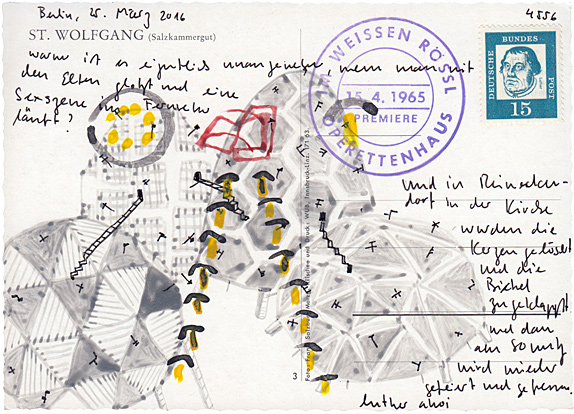 Berlin, 25. März 2016
4556
ST. WOLFGANG (Salzkammergut)
warum ist es eigentlich unangenehm, wenn man mit
den Eltern glotzt und eine
Sexszene im Fernseher
läuft?
IM WEISSEN RÖSSL
15. 4. 1965
PREMIERE
OPERETTENHAUS
DEUTSCHE BUNDESPOST
15
und in Reinicken-
dorf in der Kirche
werden die
Kerzen gelöscht
und die
Bücher
zugeklappt
und dann
am Sonntag
wird wieder
gefeiert und
luther ahoi
3